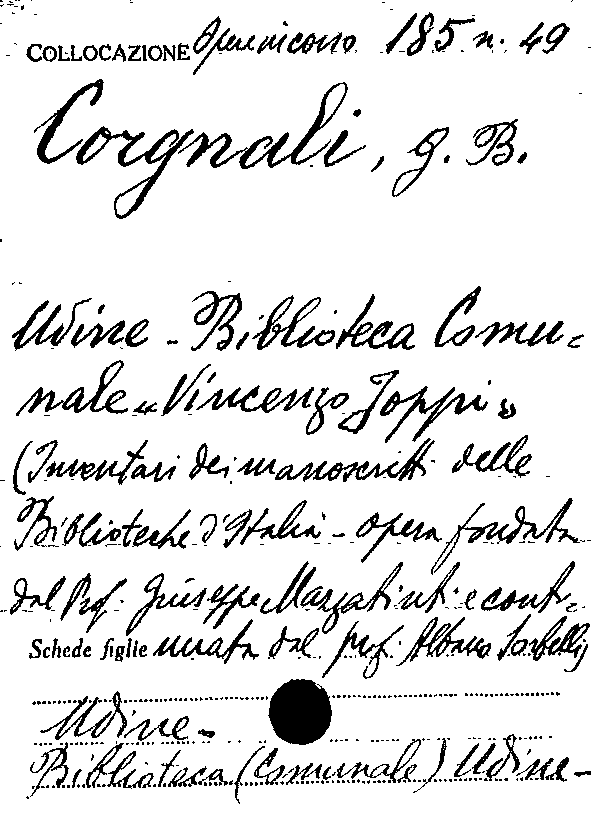 COLLOCAZIONE Opere in corso 185 n. 49
Corgnali, G. B.
Udine - Biblioteca Comu=
nale "Vincenzo Joppi"
(Inventari dei manoscritti delle
Biblioteche d'Italia - opera fondata
dal Prof. Giuseppe Mazzatinti e conti=
Schede figlie nuata dal prof. Albano Sorbelli)
Udine -
Biblioteca (Comunale) Udine -